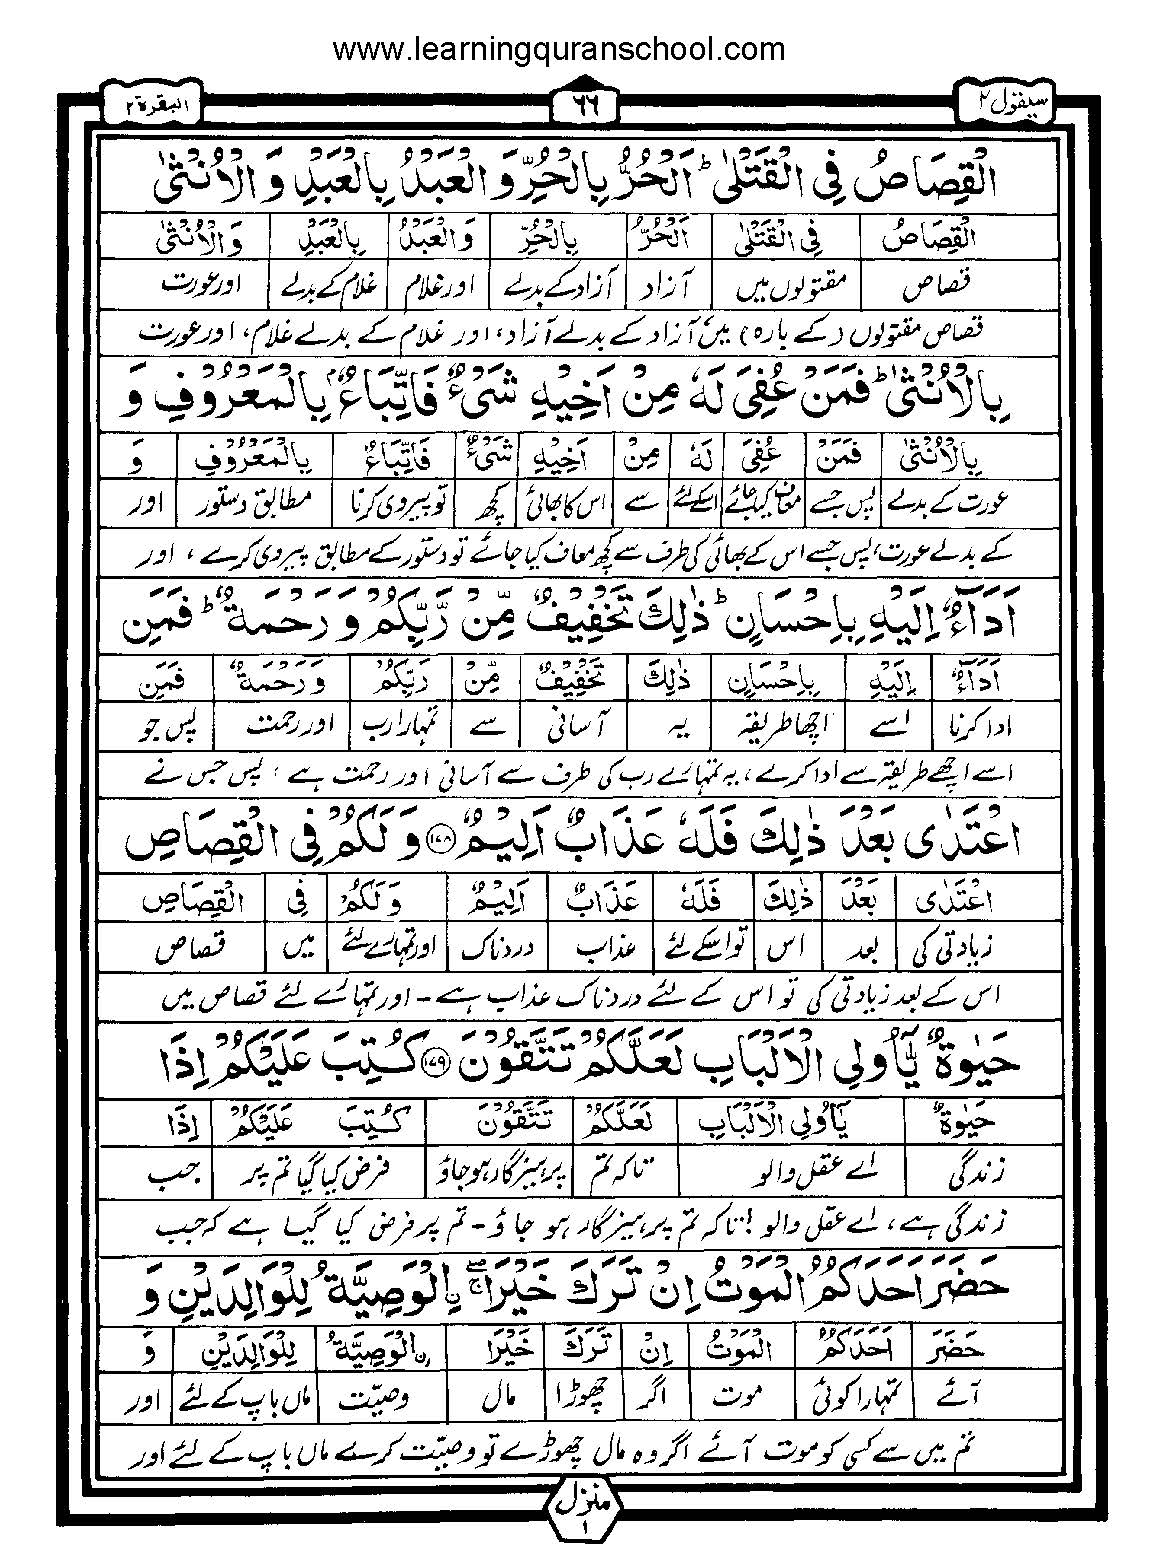 www.learningquranschool.com
سیقول ۲ ۶۶ البقرة ۲
الْقِصَاصُ فِي الْقَتْلٰى ؕ اَلْحُرُّ بِالْحُرِّ وَ الْعَبْدُ بِالْعَبْدِ وَ الْاُنْثٰى
الْقِصَاصُ فِي الْقَتْلٰى اَلْحُرُّ بِالْحُرِّ وَ الْعَبْدُ بِالْعَبْدِ وَ الْاُنْثٰى
قصاص مقتولوں میں آزاد آزاد کے بدلے اور غلام غلام کے بدلے اور عورت
قصاص مقتولوں (کے بارہ) میں آزاد کے بدلے آزاد، اور غلام کے بدلے غلام، اور عورت
بِالْاُنْثٰى ؕ فَمَنْ عُفِيَ لَهٗ مِنْ اَخِيْهِ شَيْءٌ فَاتِّبَاعٌۢ بِالْمَعْرُوْفِ وَ
بِالْاُنْثٰى فَمَنْ عُفِيَ لَهٗ مِنْ اَخِيْهِ شَيْءٌ فَاتِّبَاعٌ بِالْمَعْرُوْفِ وَ
عورت کے بدلے پس جسے معاف کیا جائے اسکے لئے سے اس کا بھائی کچھ تو پیروی کرنا مطابق دستور اور
کے بدلے عورت، پس جسے اس کے بھائی کی طرف سے کچھ معاف کیا جائے تو دستور کے مطابق پیروی کرے، اور
اَدَآءٌ اِلَيْهِ بِاِحْسَانٍ ؕ ذٰلِكَ تَخْفِيْفٌ مِّنْ رَّبِّكُمْ وَ رَحْمَةٌ ؕ فَمَنِ
اَدَآءٌ اِلَيْهِ بِاِحْسَانٍ ذٰلِكَ تَخْفِيْفٌ مِّنْ رَبِّكُمْ وَ رَحْمَةٌ فَمَنِ
ادا کرنا اسے اچھا طریقہ یہ آسانی سے تمہارا رب اور رحمت پس جو
اسے اچھے طریقہ سے ادا کرے، یہ تمہارے رب کی طرف سے آسانی اور رحمت ہے، پس جس نے
اعْتَدٰى بَعْدَ ذٰلِكَ فَلَهٗ عَذَابٌ اَلِيْمٌ ۱۷۸ وَ لَكُمْ فِي الْقِصَاصِ
اعْتَدٰى بَعْدَ ذٰلِكَ فَلَهٗ عَذَابٌ اَلِيْمٌ وَ لَكُمْ فِي الْقِصَاصِ
زیادتی کی بعد اس تو اسکے لئے عذاب دردناک اور تمہارے لئے میں قصاص
اس کے بعد زیادتی کی تو اس کے لئے دردناک عذاب ہے - اور تمہارے لئے قصاص میں
حَيٰوةٌ يّٰۤاُولِي الْاَلْبَابِ لَعَلَّكُمْ تَتَّقُوْنَ ۱۷۹ كُتِبَ عَلَيْكُمْ اِذَا
حَيٰوةٌ يٰۤاُولِي الْاَلْبَابِ لَعَلَّكُمْ تَتَّقُوْنَ كُتِبَ عَلَيْكُمْ اِذَا
زندگی اے عقل والو تاکہ تم پرہیزگار ہو جاؤ فرض کیا گیا تم پر جب
زندگی ہے، اے عقل والو! تاکہ تم پرہیزگار ہو جاؤ - تم پر فرض کیا گیا ہے کہ جب
حَضَرَ اَحَدَكُمُ الْمَوْتُ اِنْ تَرَكَ خَيْرَا ۖۚ اِ۟لْوَصِيَّةُ لِلْوَالِدَيْنِ وَ
حَضَرَ اَحَدَكُمُ الْمَوْتُ اِنْ تَرَكَ خَيْرَا اِ۟لْوَصِيَّةُ لِلْوَالِدَيْنِ وَ
آئے تمہارا کوئی موت اگر چھوڑا مال وصیّت ماں باپ کے لئے اور
تم میں سے کسی کو موت آئے اگر وہ مال چھوڑے تو وصیّت کرے ماں باپ کے لئے اور
منزل ۱